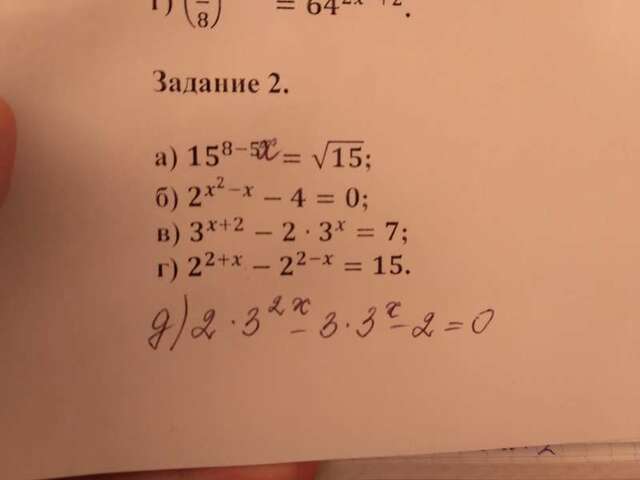 г) (—/8) = 64^(2x +2).
Задание 2.
а) 15^(8−5x) = √15;
б) 2^(x²−x) − 4 = 0;
в) 3^(x+2) − 2 · 3^x = 7;
г) 2^(2+x) − 2^(2−x) = 15.
д) 2 · 3^(2x) − 3 · 3^x − 2 = 0